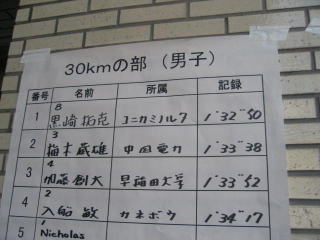 30kmの部（男子）
番号 名前 所属 記録
8
1 黒崎拓克 コニカミノルタ 1°32'50
3
2 梅木蔵雄 中国電力 1°33'38
4
3 加藤創大 早稲田大学 1°33'52
2
4 入船敏 カネボウ 1°34'17
1
5 Nicholas